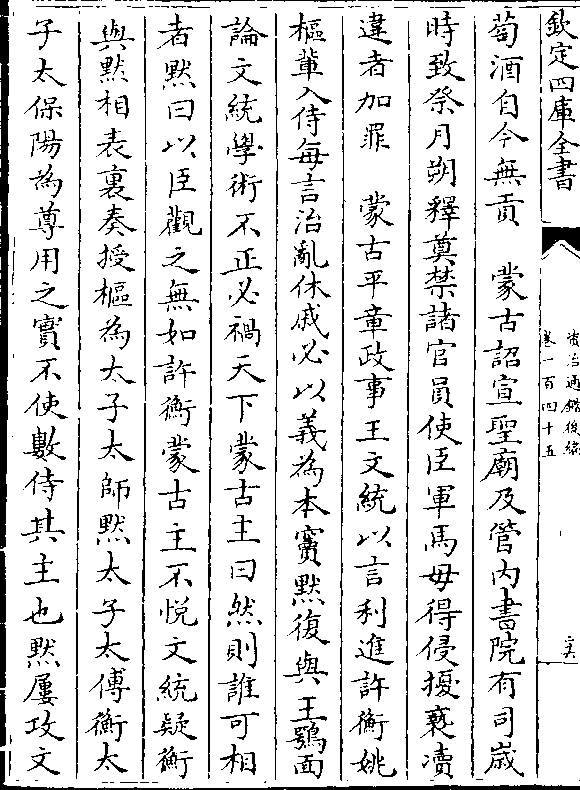 欽定四庫全書
資治通鑑後編
卷一百四十五
萄酒自今無貢　蒙古詔宣聖廟及管内書院有司歳
時致祭月朔釋奠禁諸官員使臣軍馬毋得侵擾褻凟
違者加罪　蒙古平章政事王文統以言利進許衡姚
樞輩入侍每言治亂休戚必以義為本竇默復與王鶚面
論文統學術不正必禍天下蒙古主曰然則誰可相
者默曰以臣觀之無如許衡蒙古主不悦文統疑衡
與默相表裏奏授樞為太子太師默太子太傅衡太
子太保陽為尊用之實不使數侍其主也默屢攻文